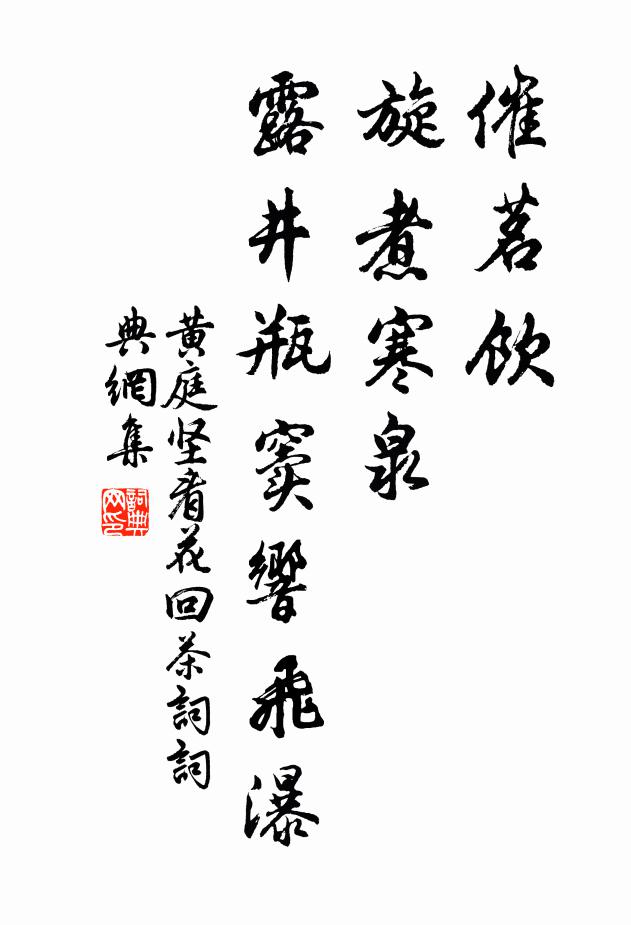 催茗饮
旋煮寒泉
露井瓶窦響飛瀑
黄庭坚看花回茶詞詞
典網集
詞典
网印